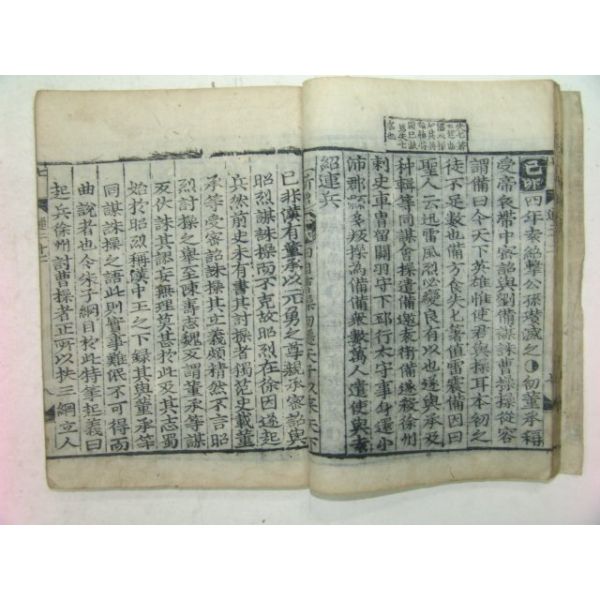 己卯 四年袁紹擊公孫瓚滅之 初董承稱
受帝衣帶中密詔與劉備謀誅曹操操從容
謂備曰今天下英雄惟使君與操耳本初之
徒不足數也備方食失匕箸值雷震備因曰
聖人云迅雷風烈必變良有以也遂與承及
种輯等同謀會操遣備邀袁術備遂殺徐州
刺史車冑留關羽守下邳行太守事身還小
沛郡縣多叛操為備備衆數萬人遣使與袁
紹連兵
天下
已非漢有董承以元舅之尊親承密詔與
昭烈謀誅操而不克故昭烈在徐因遂起
兵然前史未有書其討操者獨范史載董
承等受密詔誅操其立義頗精然不言昭
烈討操之擧至陳壽志魏又謂董承等謀
反伏誅其認妄無理莫甚於此及其志蜀
始於昭烈稱漢中王之下錄其與董承等
同謀誅操之語此則實事難泯不可得而
曲說者也今朱子綱目於此特筆起義曰
起兵徐州討曹操者正所以扶三綱立人